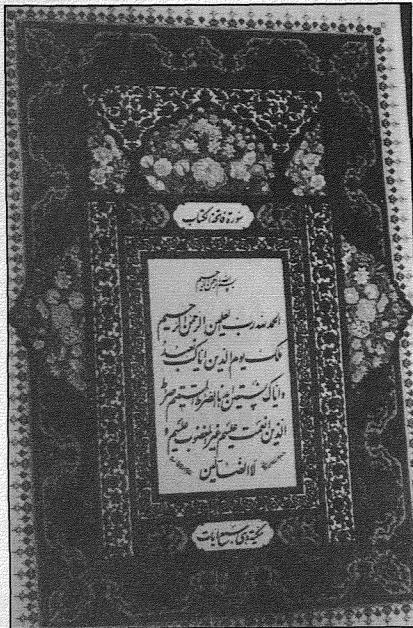 سورة فاتحة الكتاب
بسم الله الرحمن الرحيم
الحمد لله رب العلمين الرحمن الرحيم
ملك يوم الدين اياك نعبد
و اياك نستعين اهدنا الصراط المستقيم صراط
الذين انعمت عليهم غير المغضوب عليهم و
لا الضالين
مكية و هى سبع آيات